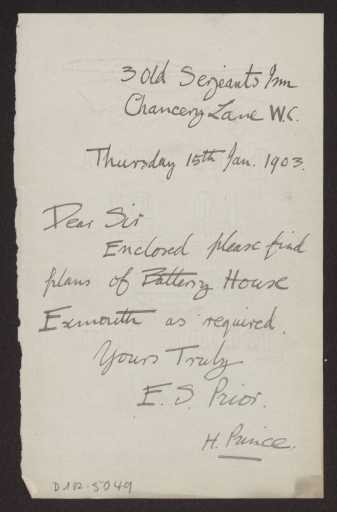 3 Old Serjeants Inn
Chancery Lane W.C.
Thursday 15th Jan. 1903.
Dear Sir
Enclosed please find
plans of Battery House
Exmouth as required.
Yours Truly
E. S. Prior.
H. Prince.
D182-5049